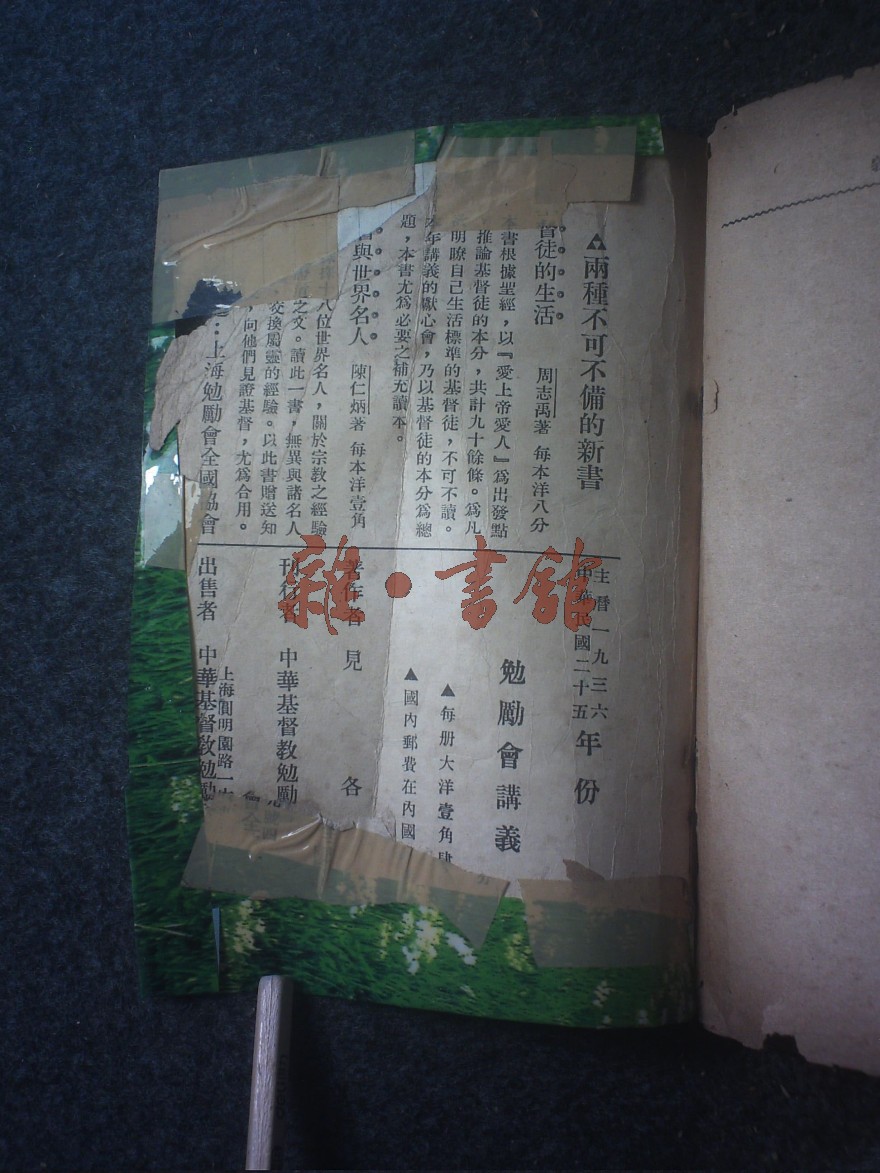 ▲兩種不可不備的新書
督徒的生活 周志禹著 每本洋八分
本書根據聖經，以『愛上帝愛人』爲出發點
推論基督徒的本分，共計九十餘條。爲凡
明瞭自己生活標準的基督徒，不可不讀。
年講義的獻心會，乃以基督徒的本分爲總
題，本書尤爲必要之補充讀本。
與世界名人 陳仁炳著 每本洋壹角
十八位世界名人，關於宗教之經驗
之文。讀此一書，無異與諸名人
交換屬靈的經驗。以此書贈送知
，向他們見證基督，尤爲合用。
：上海勉勵會全國協會
主曆一九三六
中華民國二十五年份
勉勵會講義
▲每册大洋壹角肆分
▲國內郵費在內國
著作者 見 各
刊行者 中華基督教勉勵
上海圓明園路一
出售者 中華基督教勉勵
雜·書館